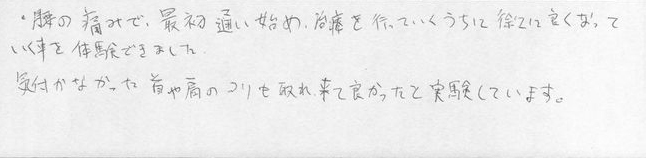 ・腰の痛みで、最初通い始め、治療を行っていくうちに徐々に良くなって
いく事を体験できました。
気付かなかった首や肩のコリも取れ、来て良かったと実験しています。